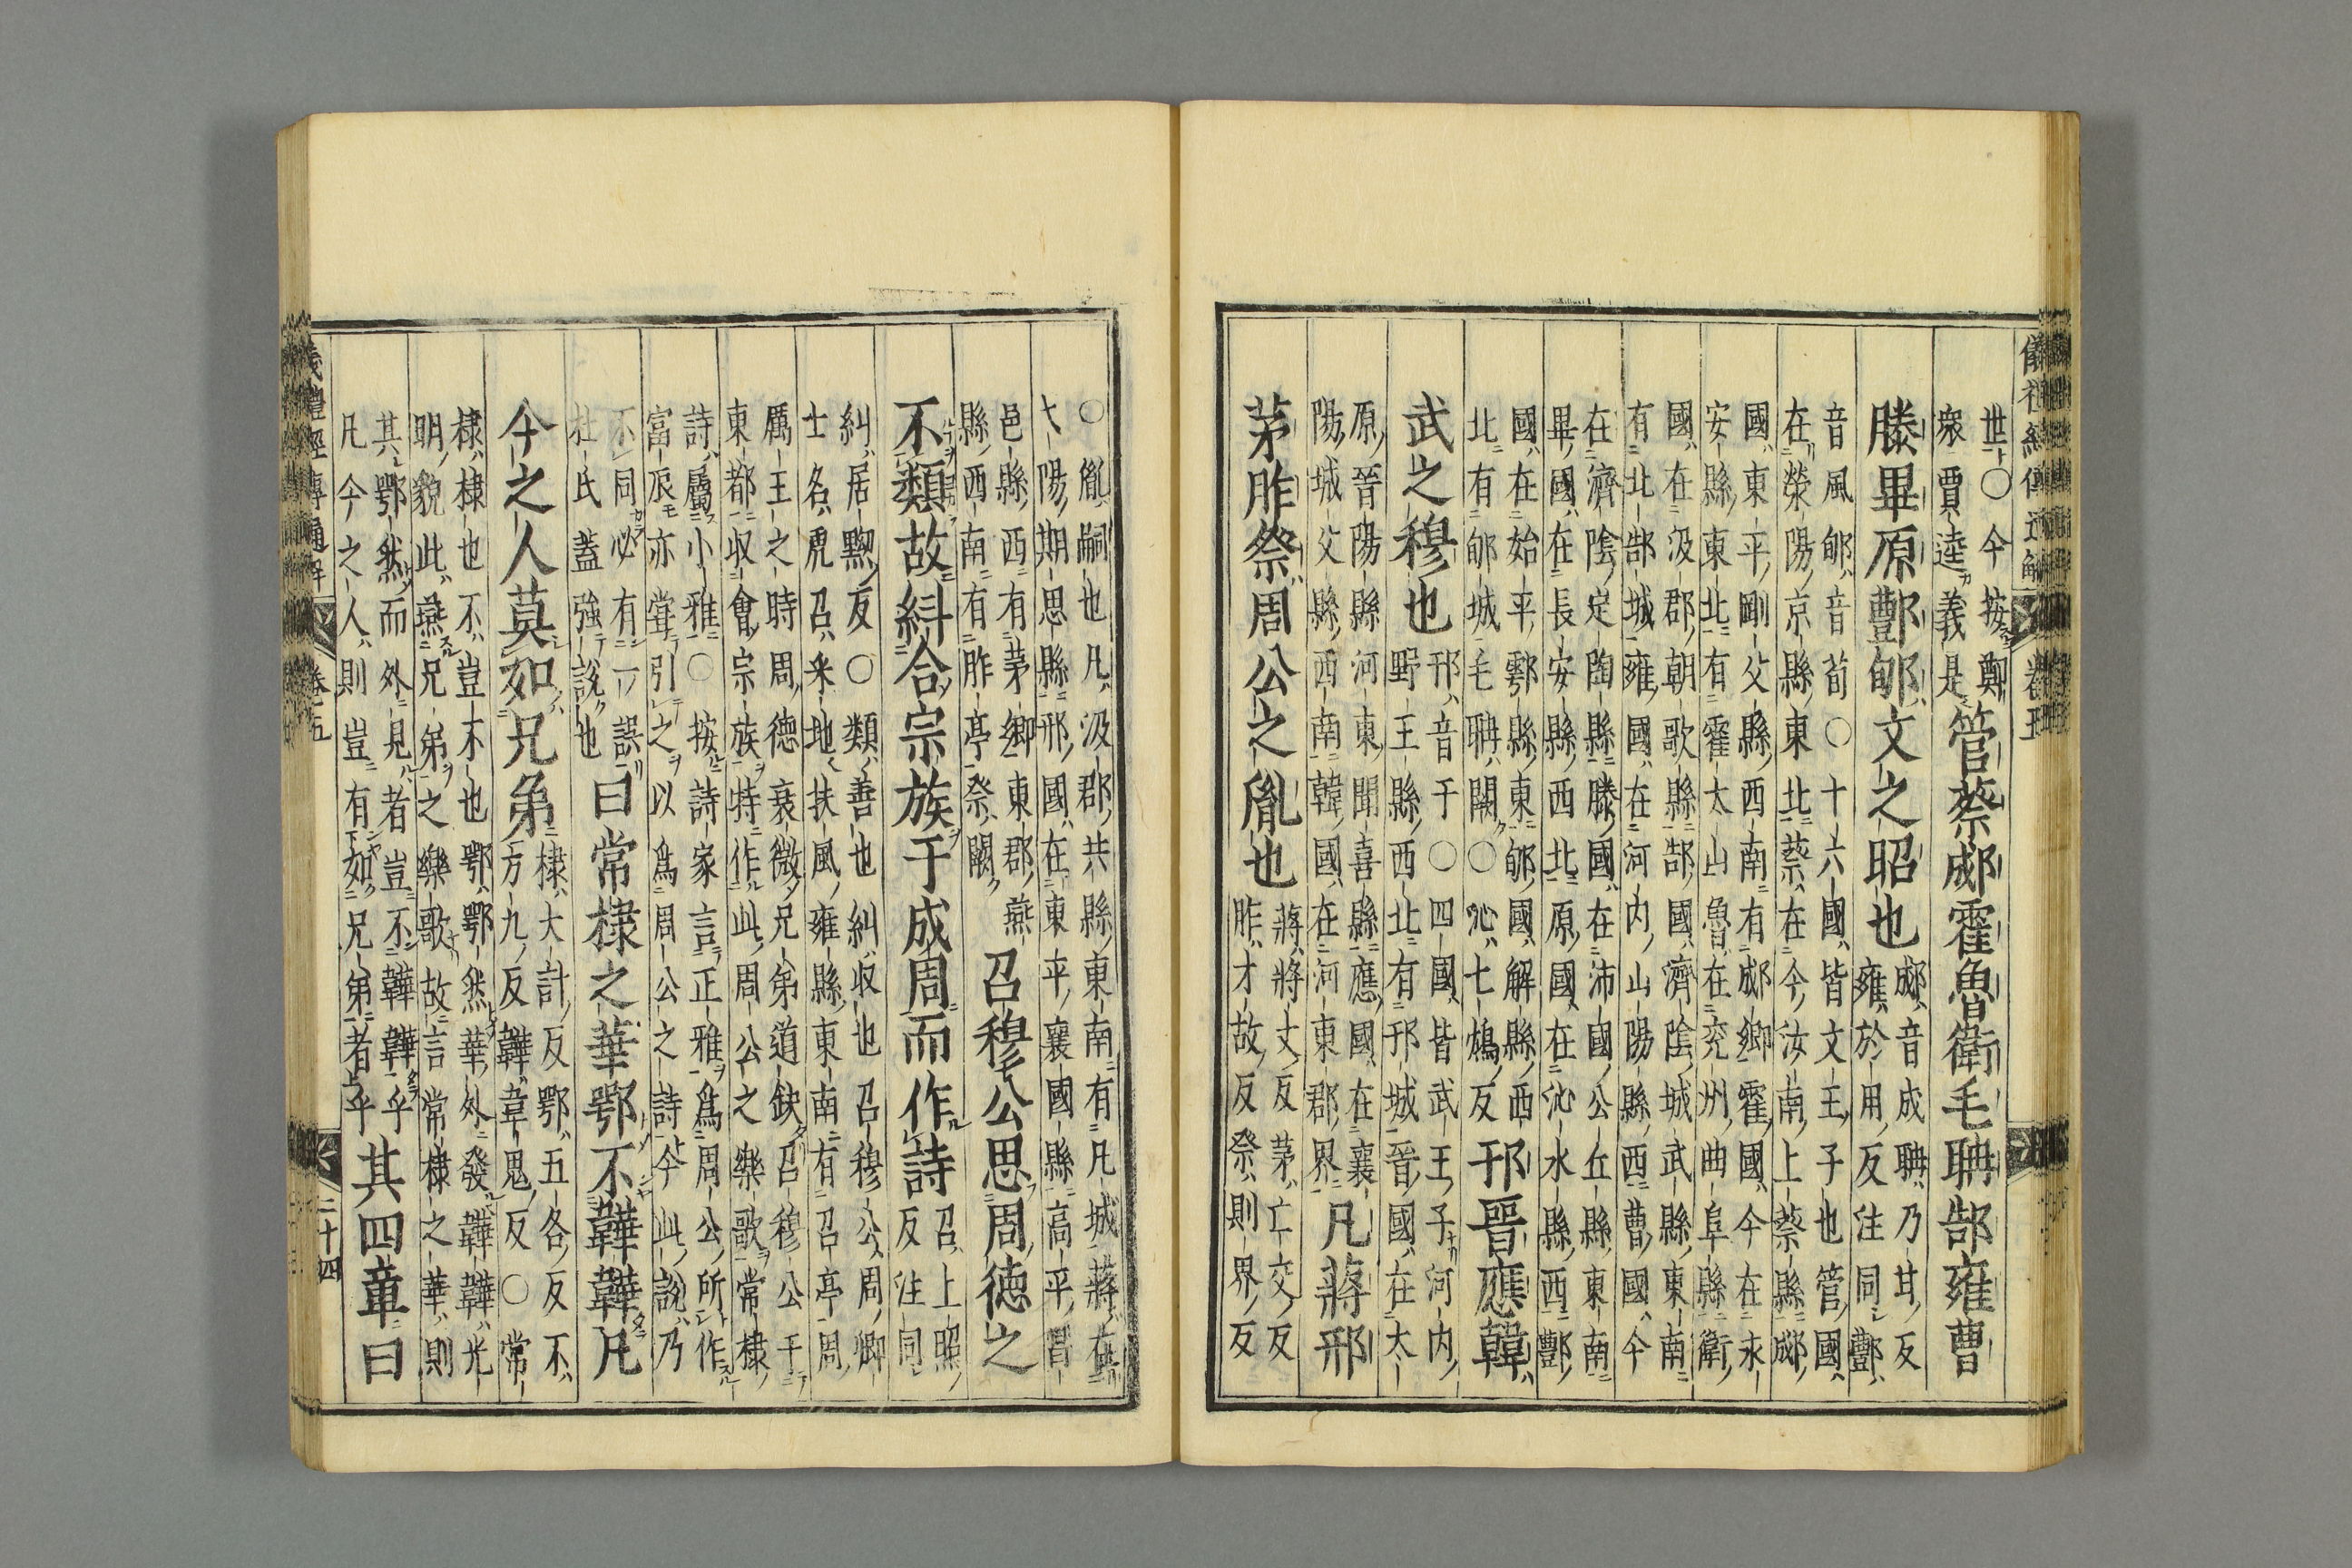 儀禮經傳通解 卷五
世○今按鄭
衆賈逵義是
管蔡郕霍魯衛毛聃郜雍曹
滕畢原酆郇文之昭也
郕音成聃乃甘反
雍於用反注同酆
音風郇音荀○十六國皆文王子也管國
在滎陽京縣東北蔡在今汝南上蔡縣郕
國東平剛父縣西南有郕鄉霍國今在永
安縣東北有霍太山魯在兖州曲阜縣衛
國在汲郡朝歌縣郜國濟陰城武縣東南
有北郜城雍國在河内山陽縣西曹國今
在濟陰定陶縣滕國在沛國公丘縣東南
畢國在長安縣西北原國在沁水縣西酆
國在始平鄠縣東郇國解縣西
北有郇城毛聃闕○沁七鴆反
邘晉應韓
武之穆也
邘音于○四國皆武王子河内
野王縣西北有邘城晉國在太
原晉陽縣河東聞喜縣應國在襄
陽城父縣西南韓國在河東郡界
凡蔣邢
茅胙祭周公之胤也
蔣將丈反茅亡交反
胙才故反祭則界反
○胤嗣也凡汲郡共縣東南有凡城蔣在
弋陽期思縣邢國在東平襄國縣高平昌
邑縣西有茅鄉東郡燕
縣西南有胙亭祭闕
召穆公思周德之
不類故糾合宗族于成周而作詩
召上照
反注同
糾居黝反○類善也糾收也召穆公周卿
士名虎召采地扶風雍縣東南有召亭周
厲王之時周德衰微兄弟道缺召穆公于
東都收會宗族特作此周公之樂歌常棣
詩屬小雅○按詩家言正雅爲周公所作
富辰亦嘗引之以爲周公之詩今此說乃
不同必有一誤
杜氏蓋強說也
曰常棣之華鄂不韡韡凡
今之人莫如兄弟
棣大計反鄂五各反不
方九反韡韋鬼反○常
棣棣也不豈不也鄂鄂然華外發韡韡光
明貌此燕兄弟之樂歌故言常棣之華則
其鄂然而外見者豈不韡韡乎
凡今之人則豈有如兄弟者乎
其四章曰
儀禮經傳通解 卷五 二十四